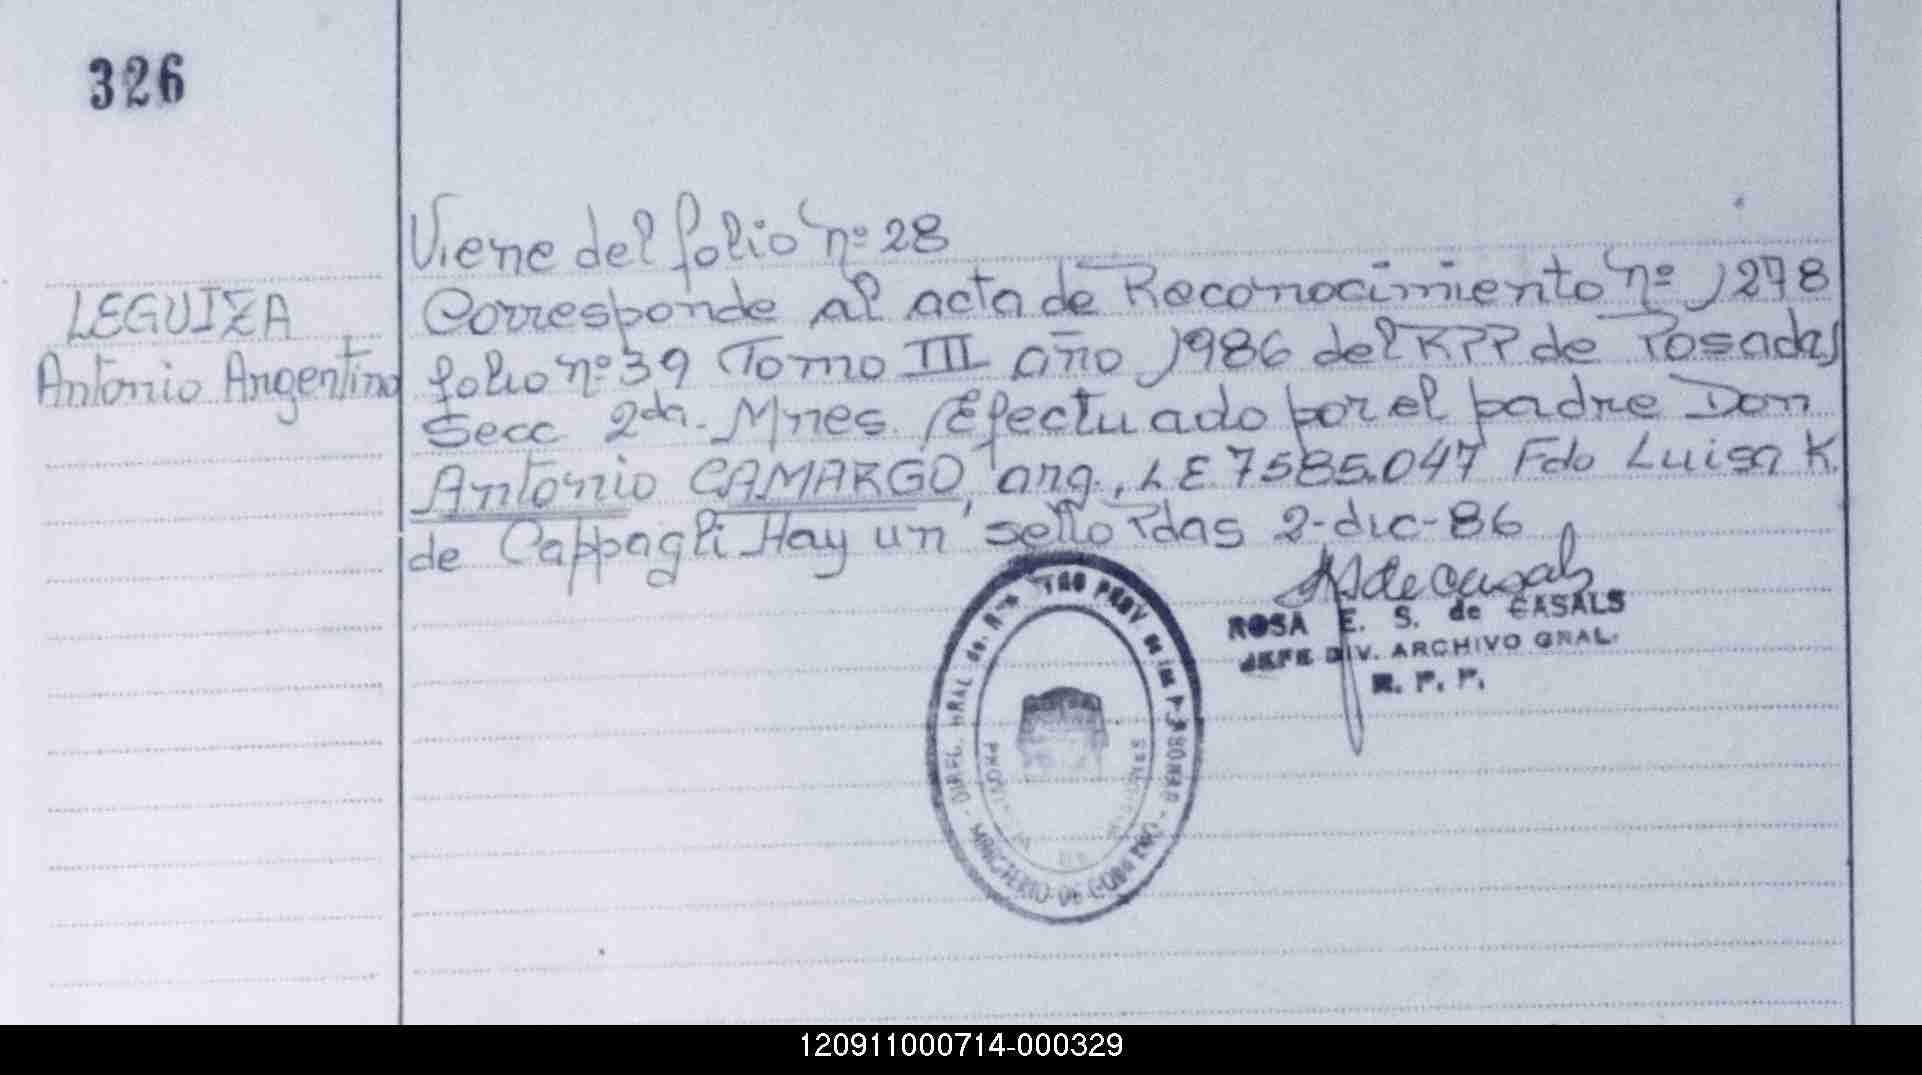 326
Viene del folio nº 28
LEGUIZA
Antonio Argentino
Corresponde al acta de Reconocimiento nº 1278
folio nº 39 Tomo III año 1986 del RPP de Posadas
Secc 2da. Mnes. Efectuado por el padre Don
Antonio CAMARGO, arg., LE 7585.047 Fdo Luisa K.
de Cappagli Hay un sello Pdas 2-dic-86
ROSA E. S. de CASALS
JEFE DIV. ARCHIVO GRAL.
R. P. P.
MINISTERIO DE GOBIERNO
120911000714-000329